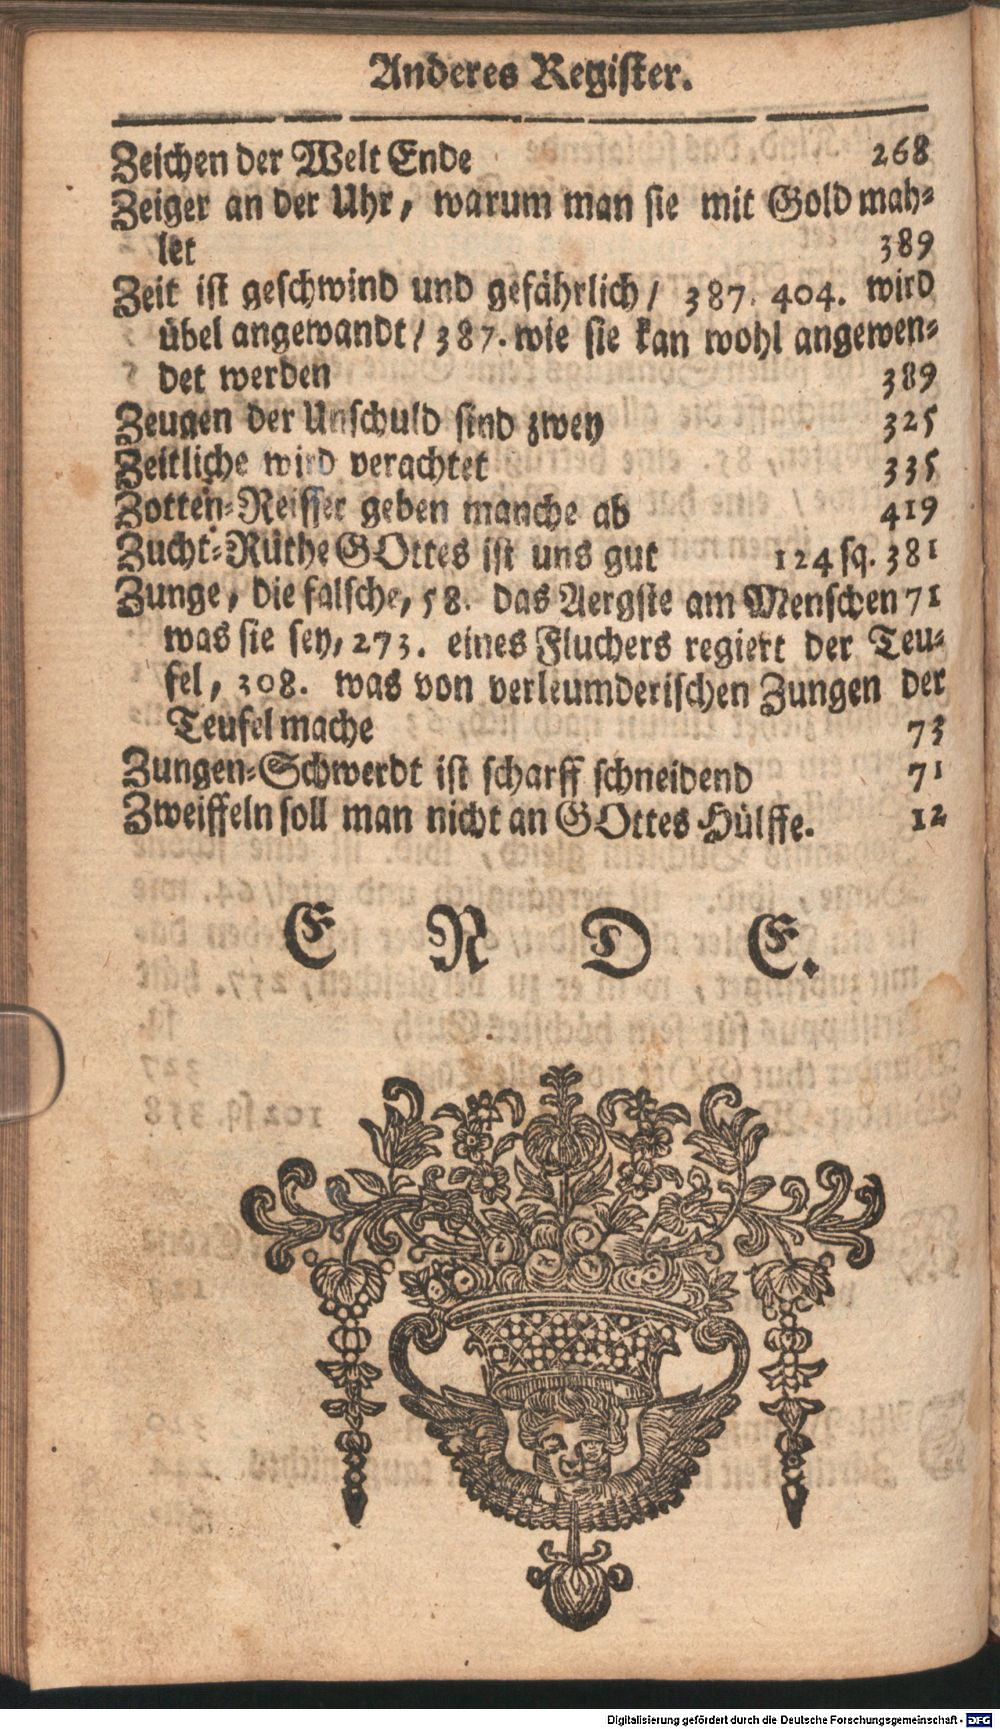 Anderes Register.
Zeichen der Welt Ende 268
Zeiger an der Uhr, warum man sie mit Gold mah-
let 389
Zeit ist geschwind und gefährlich / 387. 404. wird
übel angewandt / 387. wie sie kan wohl angewen-
det werden 389
Zeugen der Unschuld sind zwey 325
Zeitliche wird verachtet 335
Zotten-Reisser geben manche ab 419
Zucht-Rüthe GOttes ist uns gut 124 sq. 381
Zunge, die falsche, 58. das Aergste am Menschen 71
was sie sey, 273. eines Fluchers regiert der Teu-
fel, 308. was von verleumderischen Zungen der
Teufel mache 73
Zungen-Schwerdt ist scharff schneidend 71
Zweiffeln soll man nicht an GOttes Hülffe. 12
E N D E.
Digitalisierung gefördert durch die Deutsche Forschungsgemeinschaft - DFG